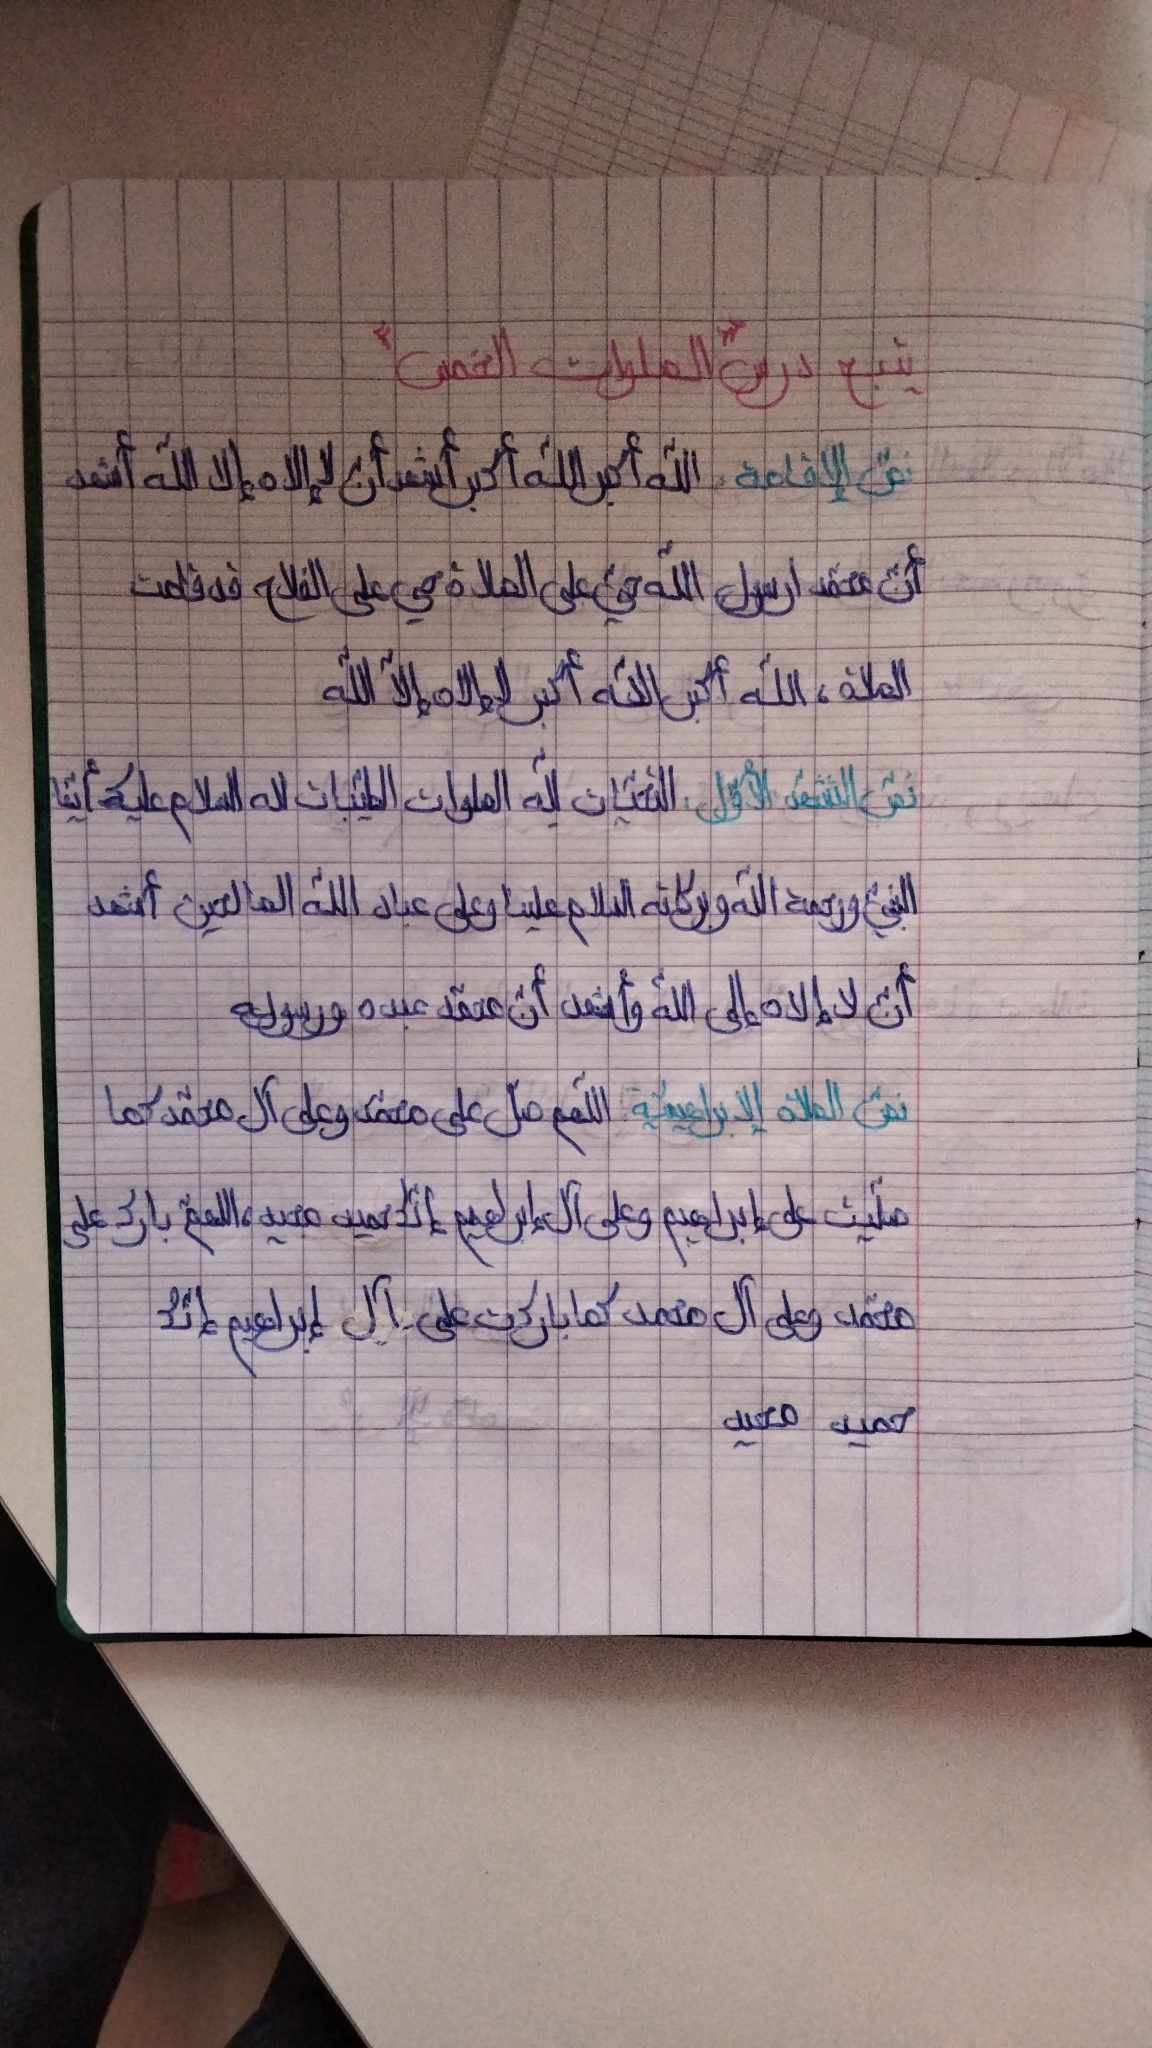 يتبع درس "الصلوات الخمس"
نص الإقامة: الله أكبر الله أكبر أشهد أن لا إلاه إلا الله أشهد
أن محمد ارسول الله حيّ على الصلاة حي على الفلاح قد قامت
الصلاة، الله أكبر الله أكبر لا إلاه إلاّ الله
نص التشهد الأوّل: التحيّات لله الصلوات الطيّبات لله السلام عليك أيها
النبيّ ورحمة الله وبركاته السلام علينا وعلى عباد الله الصالحين أشهد
أن لا إلاه إلى الله وأشهد أن محمّد عبده ورسوله
نص الصلاة الإبراهيميّة: اللّهم صلّ على محمّد وعلى آل محمّد كما
صلّيت على إبراهيم وعلى آل إبراهيم إنّك حميد مجيد، اللهمّ بارك على
محمّد وعلى آل محمد كما باركت على آل إبراهيم إنّك
حميد مجيد